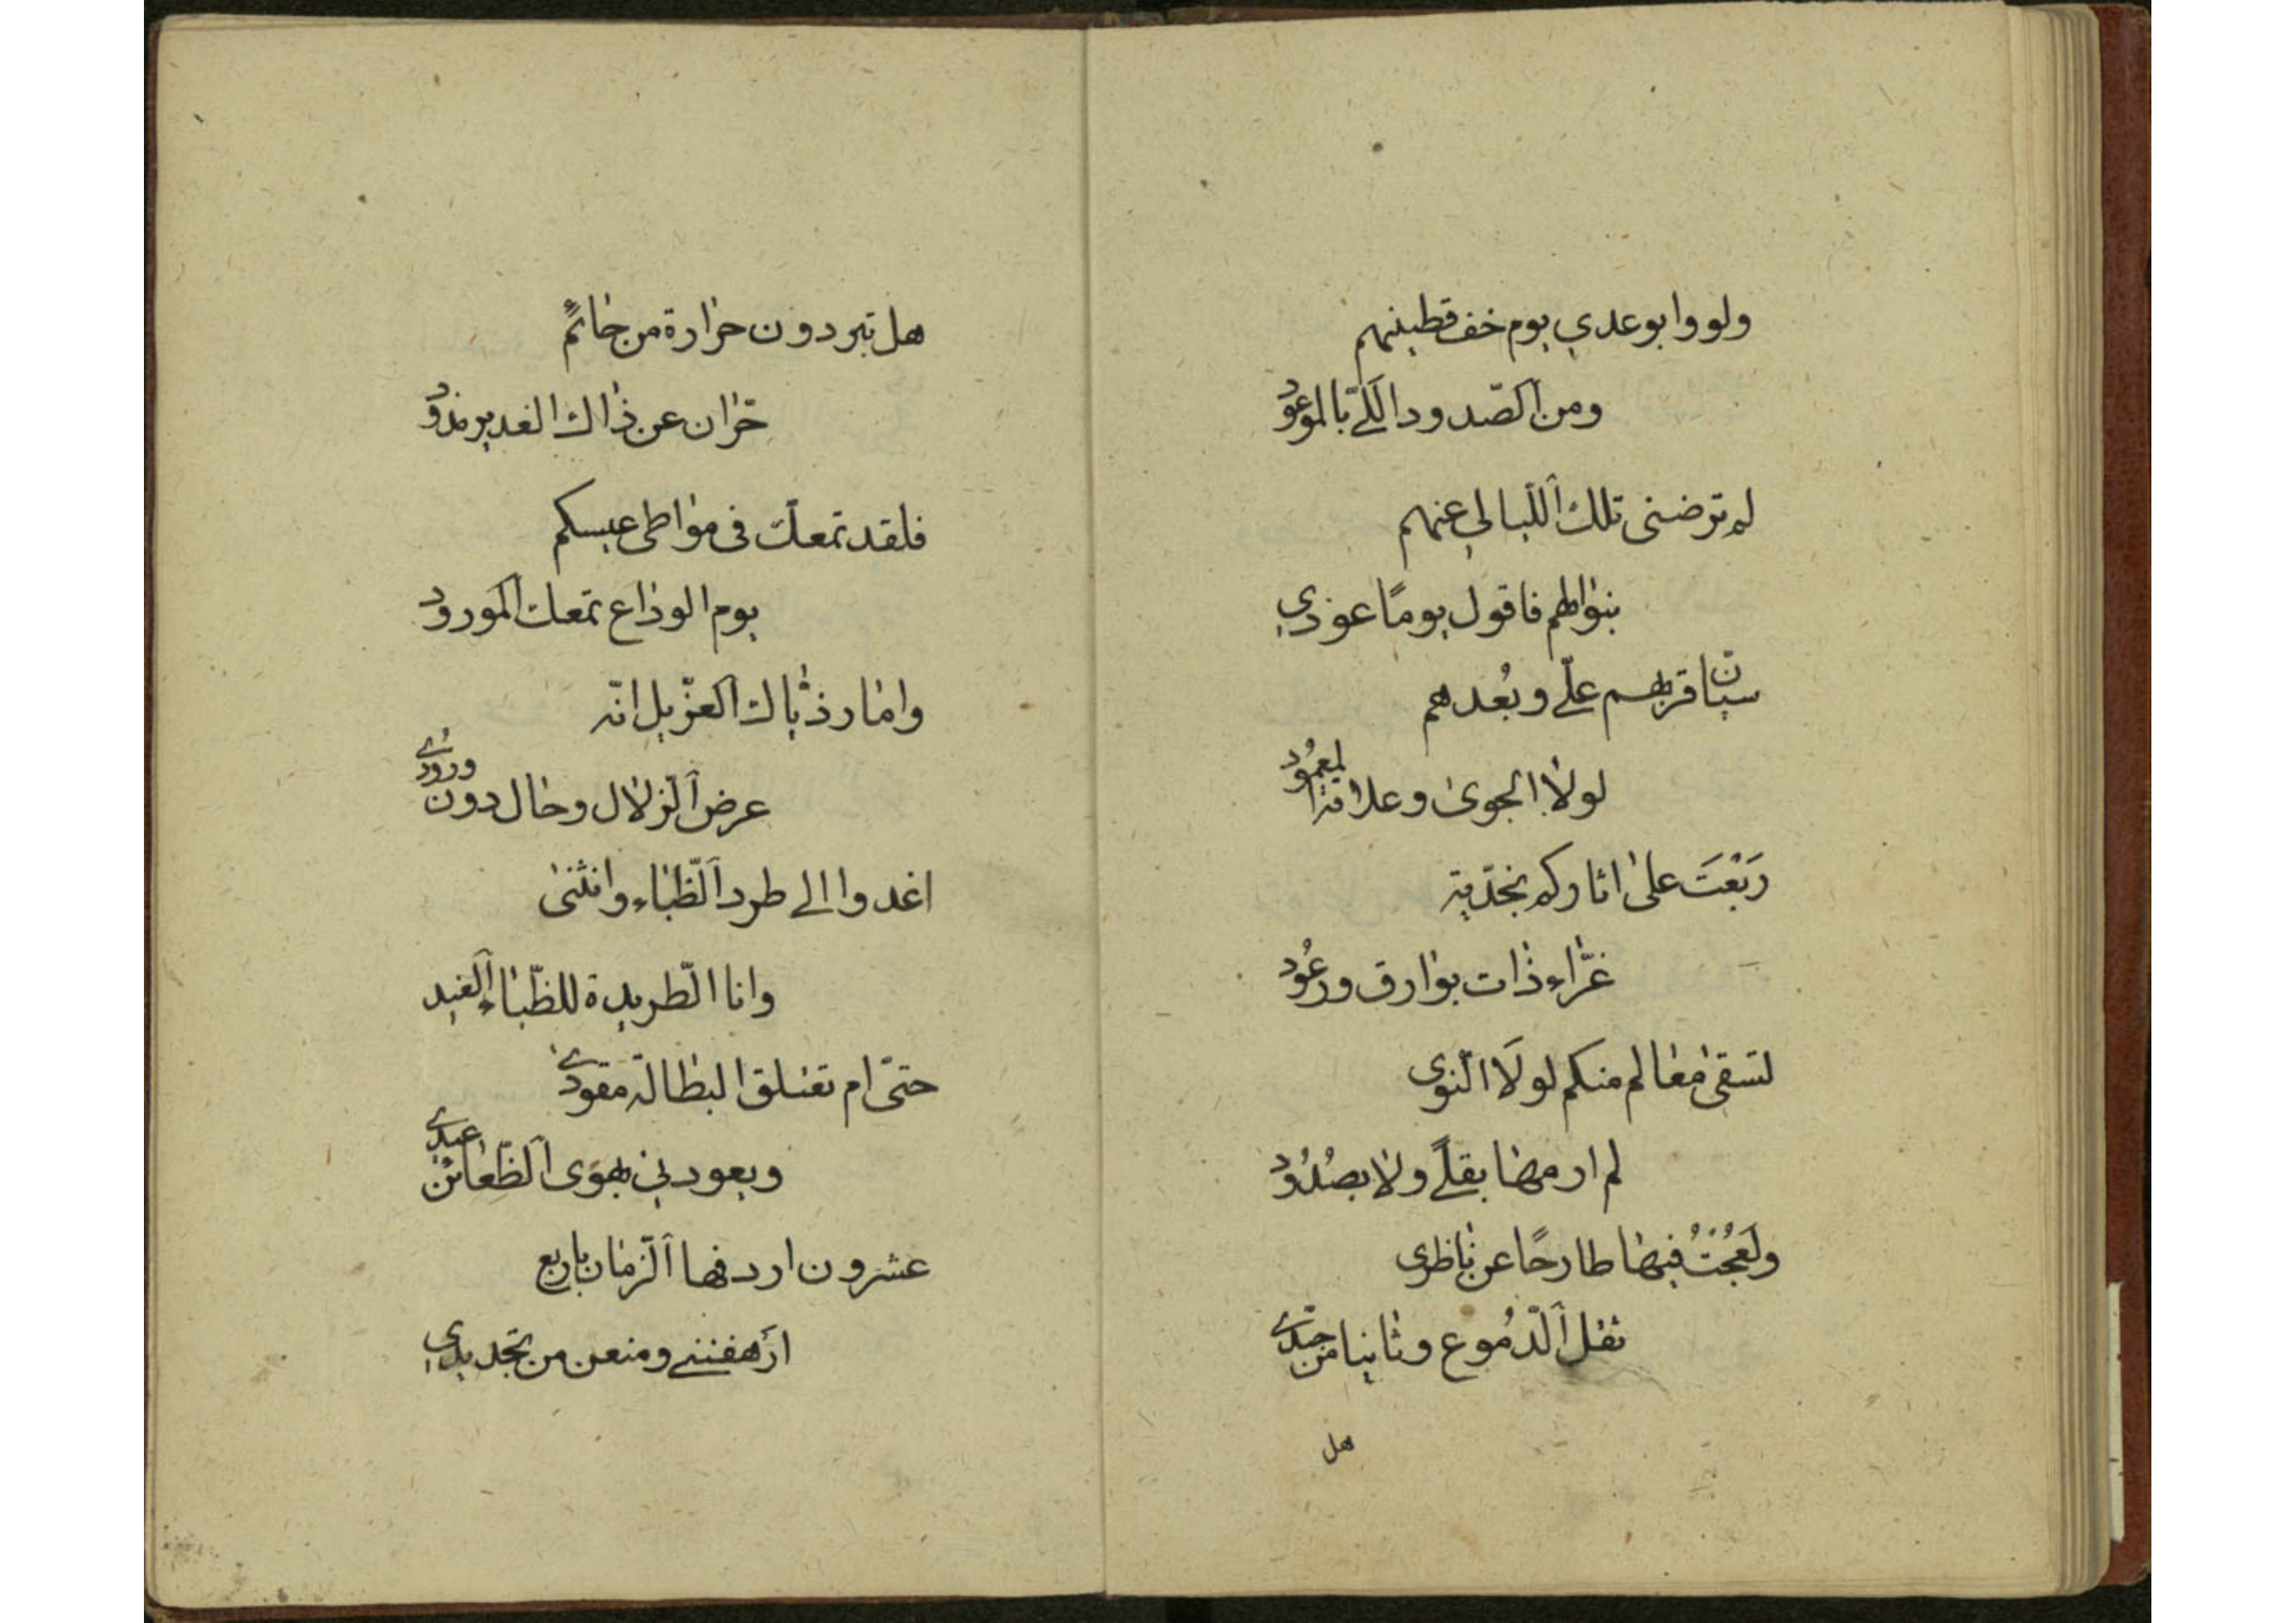 ولووا بوعدي يوم خف قطينهم
ومن الصّدود اللّيّ بالموعود
لم ترضني تلك اللّيالي عنهم
بنوالهم فاقول يومًا عودي
سيّان قربهم علّي وبُعدهم
لولا الجوى وعلاقة المعمُود
رَبَعَتَ على اثاركم نجّديّة
غرّاء ذات بوارق ورعُود
لتسقى معالم منكم لولَا النّوى
لم ارمها بقلًى ولا بصُدُود
ولَعُجْتُ فيها طارحًا عن ناظرى
ثقل الدّمُوع وثانيا من جيدي
هل
هل تبردون حرارة من حائمٍ
حرّان عن ذاك الغدير مذود
فلقد تمعّك في مواطى عيسكم
يوم الوداع تمعك المورود
واما وذيّاك الغزيّل انّه
عرض الزّلال وحال دون ورُودي
اغدوا الى طرد الظّباء وانثنى
وانا الطّريدة للظّباء الغيد
حتّى ام تعتلق البطالة مقودي
ويعود لي بهوى الظّعائن عيدي
عشرون اردفها الزّمان باربع
ارَهفنني ومنعن من تجديدي